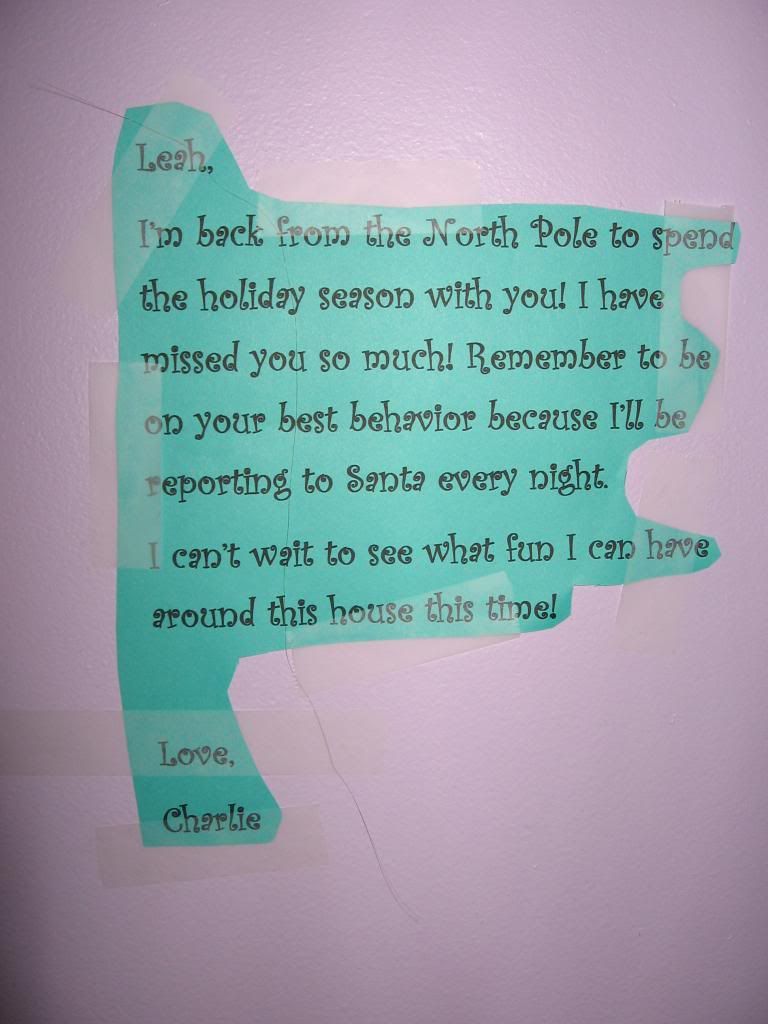 Leah,
I'm back from the North Pole to spend
the holiday season with you! I have
missed you so much! Remember to be
on your best behavior because I'll be
reporting to Santa every night.
I can't wait to see what fun I can have
around this house this time!
Love,
Charlie